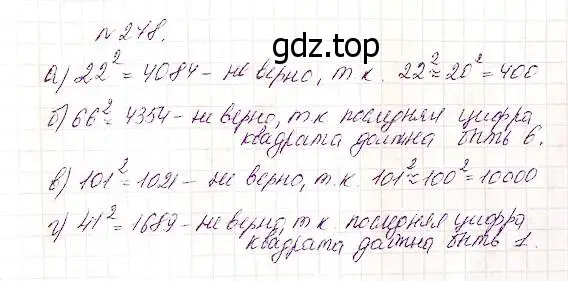 № 248.
gdz.top
а) 22² = 4084 - не верно, т.к. 22² ≈ 20² = 400
б) 66² = 4354 - не верно, т.к последняя цифра
квадрата должна быть 6.
в) 101² = 1021 - не верно, т.к. 101² ≈ 100² = 10000
г) 41² = 1689 - не верно, т.к. последняя цифра
квадрата должна быть 1.